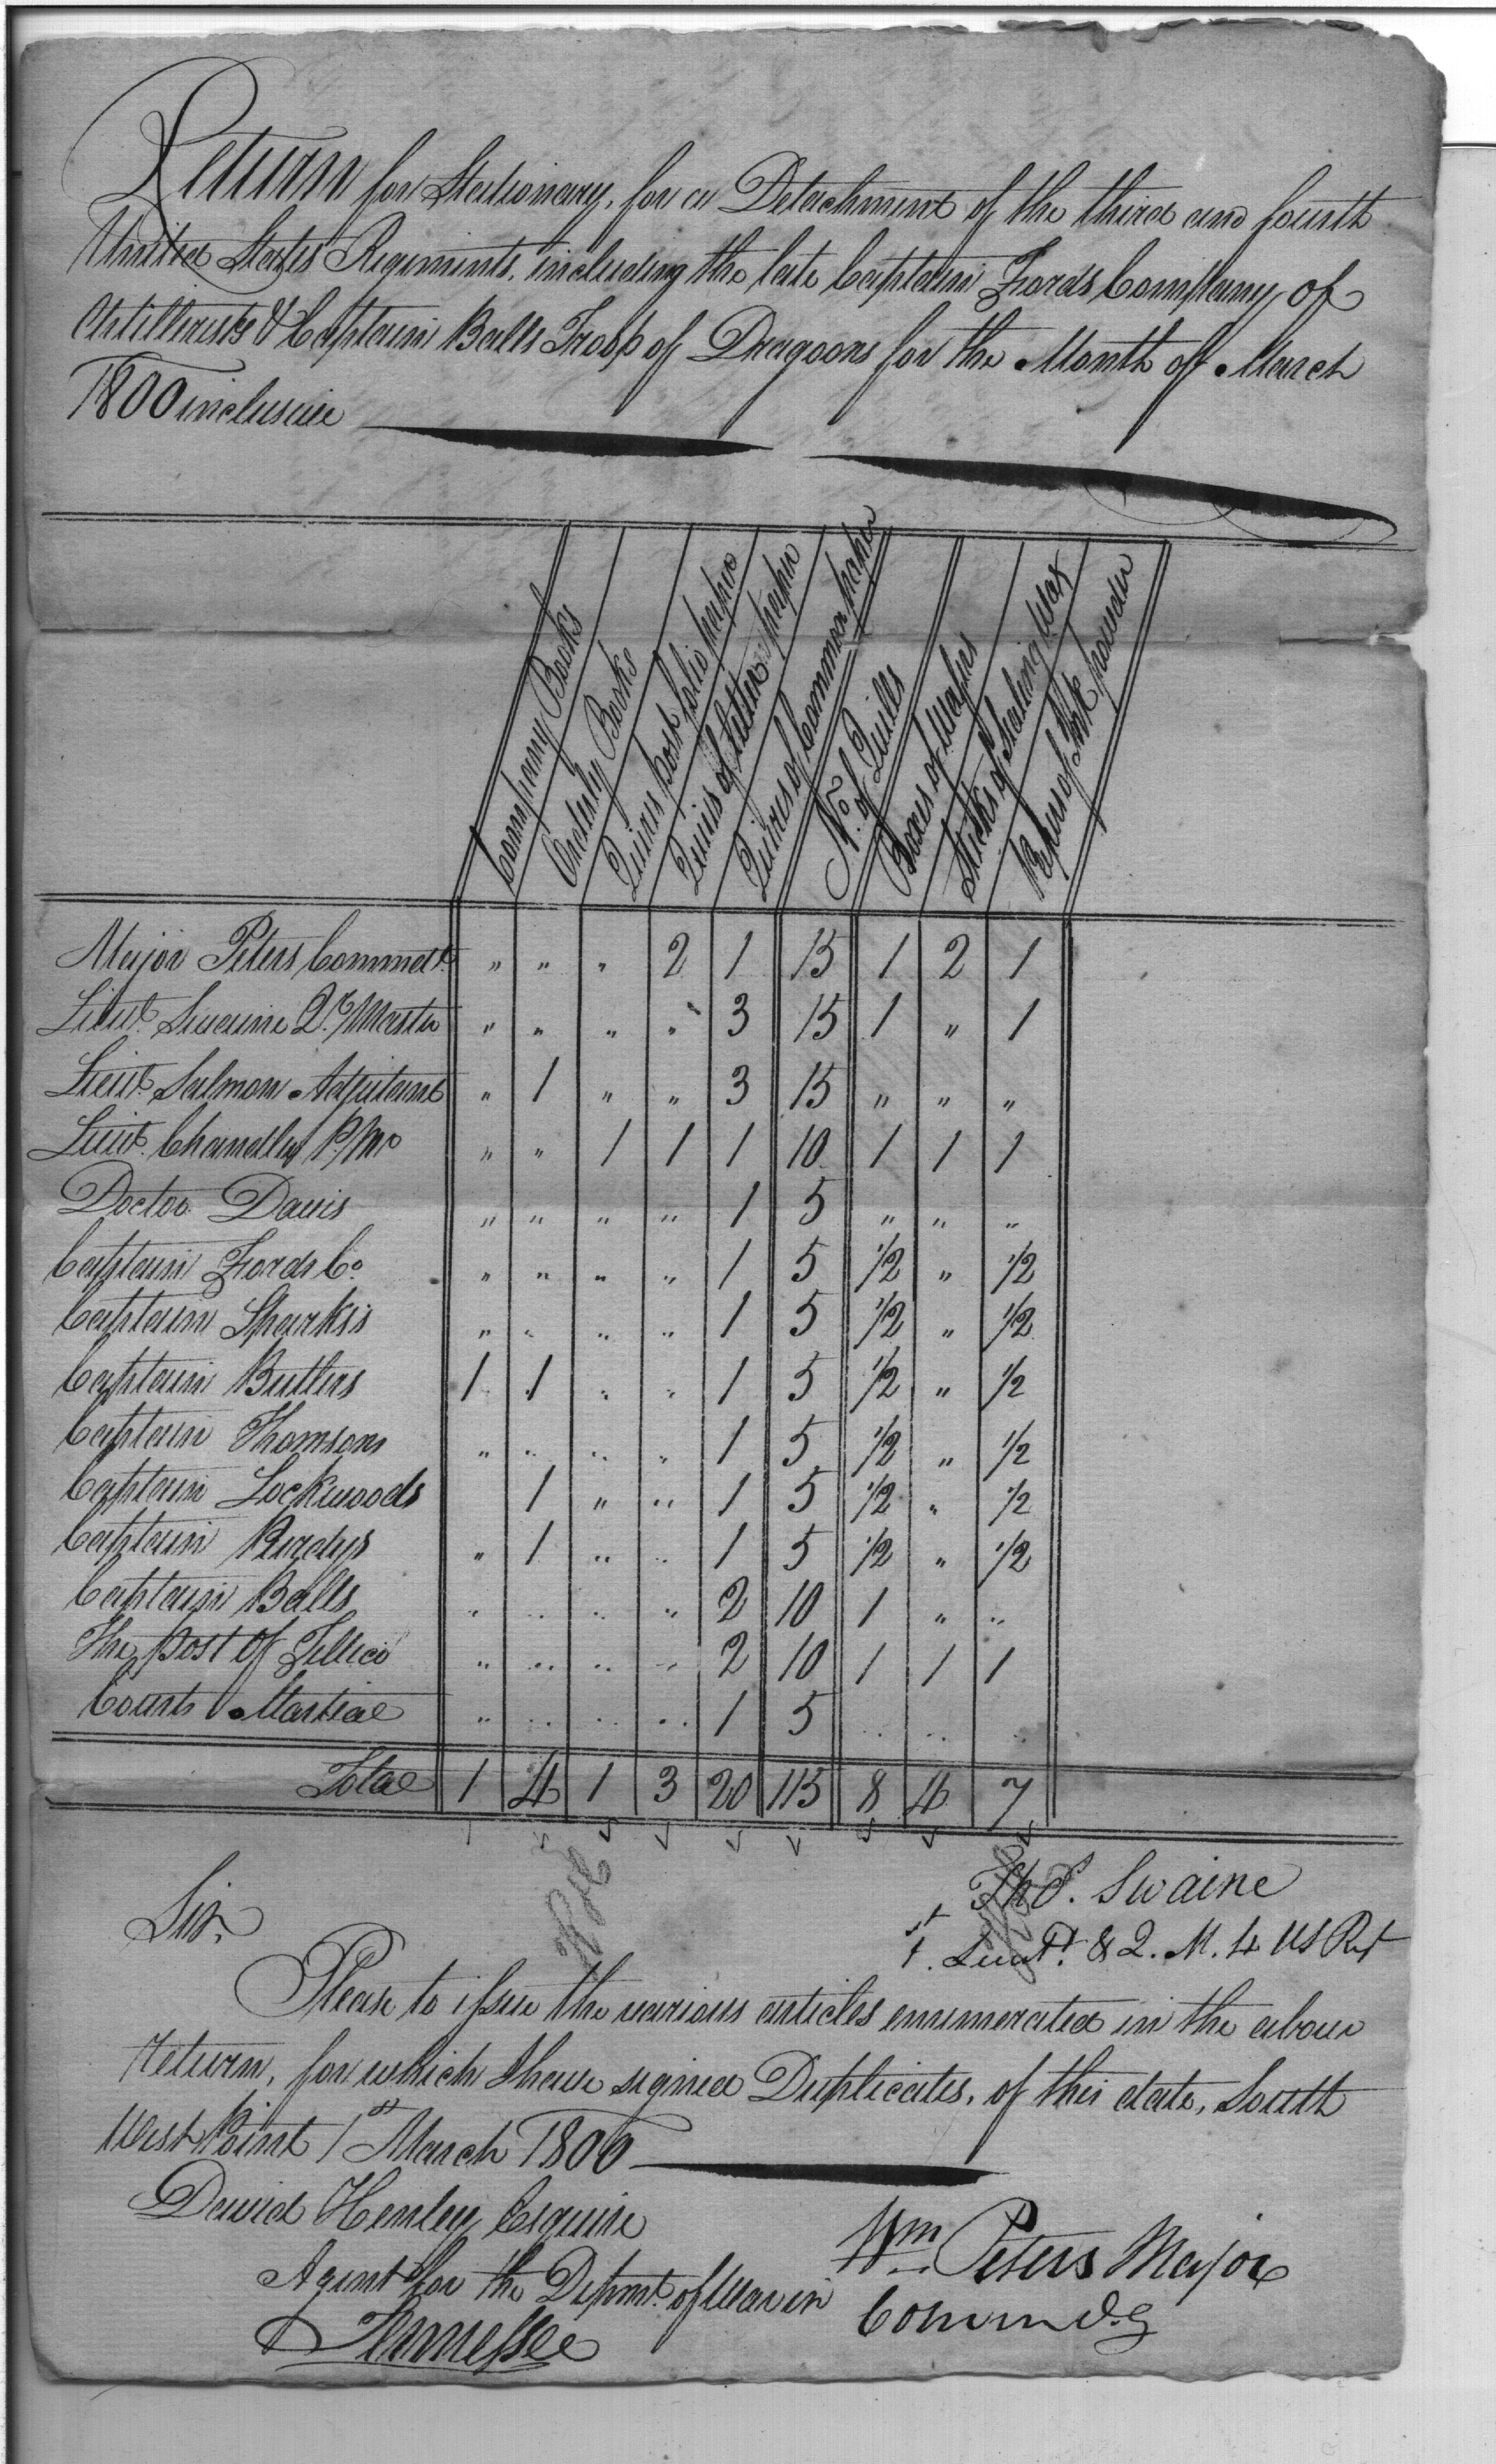 Return for Stationary, for a Detachment of the third and fourth
United States Regiments, including the late Captain Fords Company of
Artillerists & Captain Balls Troop of Dragoons for the Month of March
1800 inclusive
Company Books
Orderly Books
Quires post folio paper
Quires of Letter paper
Quires of Common paper
No. of Quills
Boxes of Wafers
Sticks of Sealing Wax
Papers of Ink powder
Major Peters Commdt. " " " 2 1 15 1 2 1
Lieut. Swaine Qr. Master " " " " 3 15 1 " 1
Lieut. Salmon Adjutant " 1 " " 3 15 " " "
Lieut. Chandler P. Mr " " 1 1 1 10 1 1 1
Doctor Davis " " " " 1 5 " " "
Captain Fords Co. " " " " 1 5 1/2 " 1/2
Captain Sparks's " " " " 1 5 1/2 " 1/2
Captain Butlers 1 1 " " 1 5 1/2 " 1/2
Captain Thomsons " " " " 1 5 1/2 " 1/2
Captain Lockwoods 1 " " 1 5 1/2 " 1/2
Captain Purdys " 1 " " 1 5 1/2 " 1/2
Captain Balls " " " " 2 10 1 " "
The post of Tellico " " " " 2 10 1 1 1
Courts Martial " " " " 1 5 " "
Total 1 4 1 3 20 115 8 4 7
Thos. Swaine
1st. Lieut. & Q. M. 4 US Rt
Sir,
Please to issue the various articles enumerated in the above
Return, for which I have signed Duplicates, of this date, South
West Point 1st March 1800
David Henley Esquire
Agent for the Depmt. of War in
Tennessee
Wm. Peters Major
Commdg